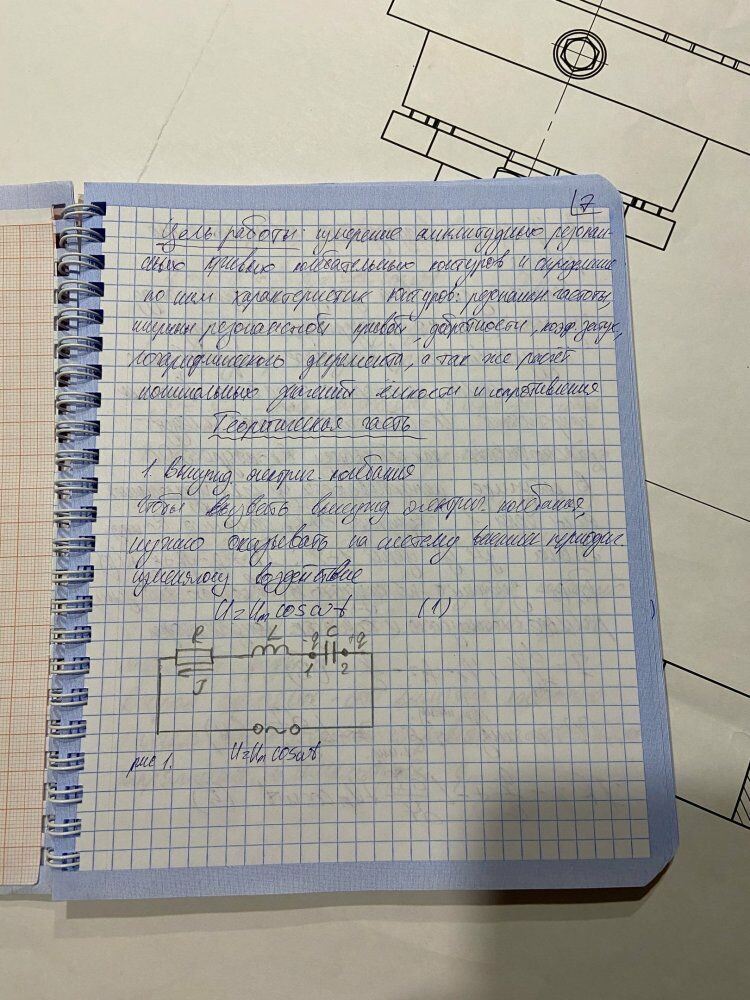 7
Цель работы: измерение амплитудных резонан-
сных кривых колебательных контуров и определение
по ним характеристик контуров: резонансн. частоты,
ширины резонансной кривой, добротности, коэф. затух,
логарифмического декремента, а так же расчёт
номинальных значений ёмкости и сопротивления
Теоритическая часть
1. Вынужд. электрич. колебания
Чтобы вызвать вынужд электрич. колебания,
нужно оказывать на систему внешнее периодич.
изменяющ воздействие
U=Um cosωt (1)
R L -q C +q
J 1 2
U=Um cosωt
рис 1.